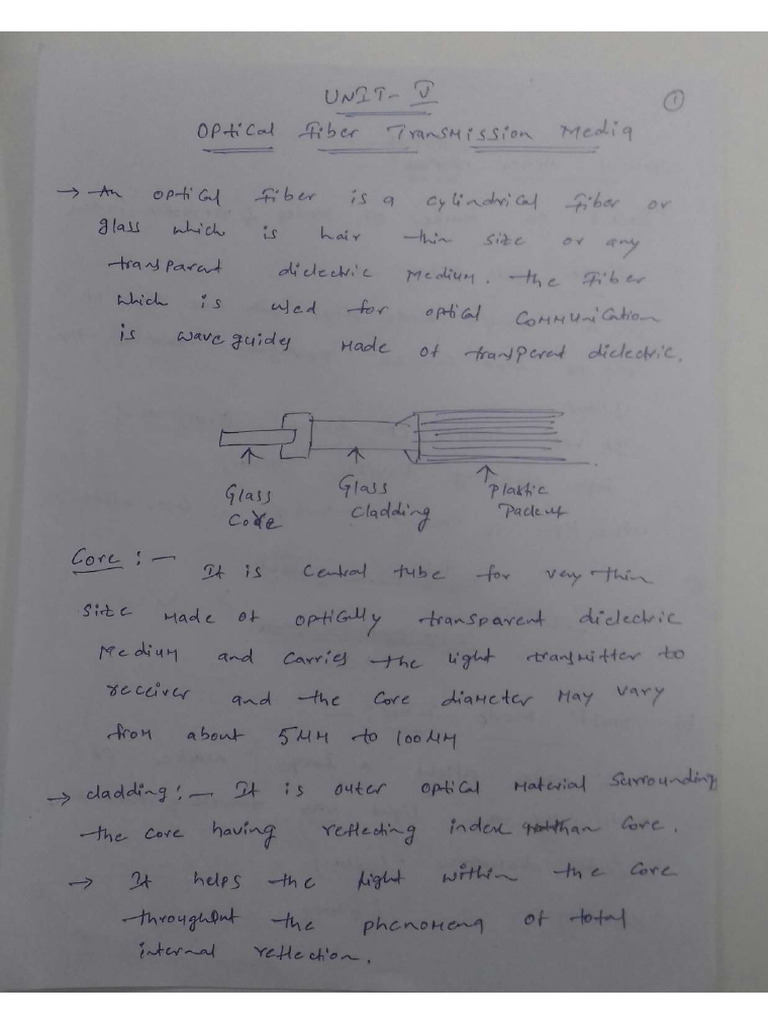 UNIT-V
1
Optical Fiber Transmission Media
→ An optical fiber is a cylindrical fiber or
glass which is hair thin size or any
transparent dielectric medium. the fiber
which is used for optical communication
is waveguides made of transperent dielectric.
Glass
Core
Glass
cladding
Plastic
Core :- It is central tube for very thin
size made of optically transparent dielectric
medium and carries the light transmitter to
receiver and the core diameter may vary
from about 5μm to 100μm
→ cladding :- It is outer optical material surrounding
the core having reflecting index than core.
→ It helps the light within the core
throughout the phenomena of total
internal reflection.